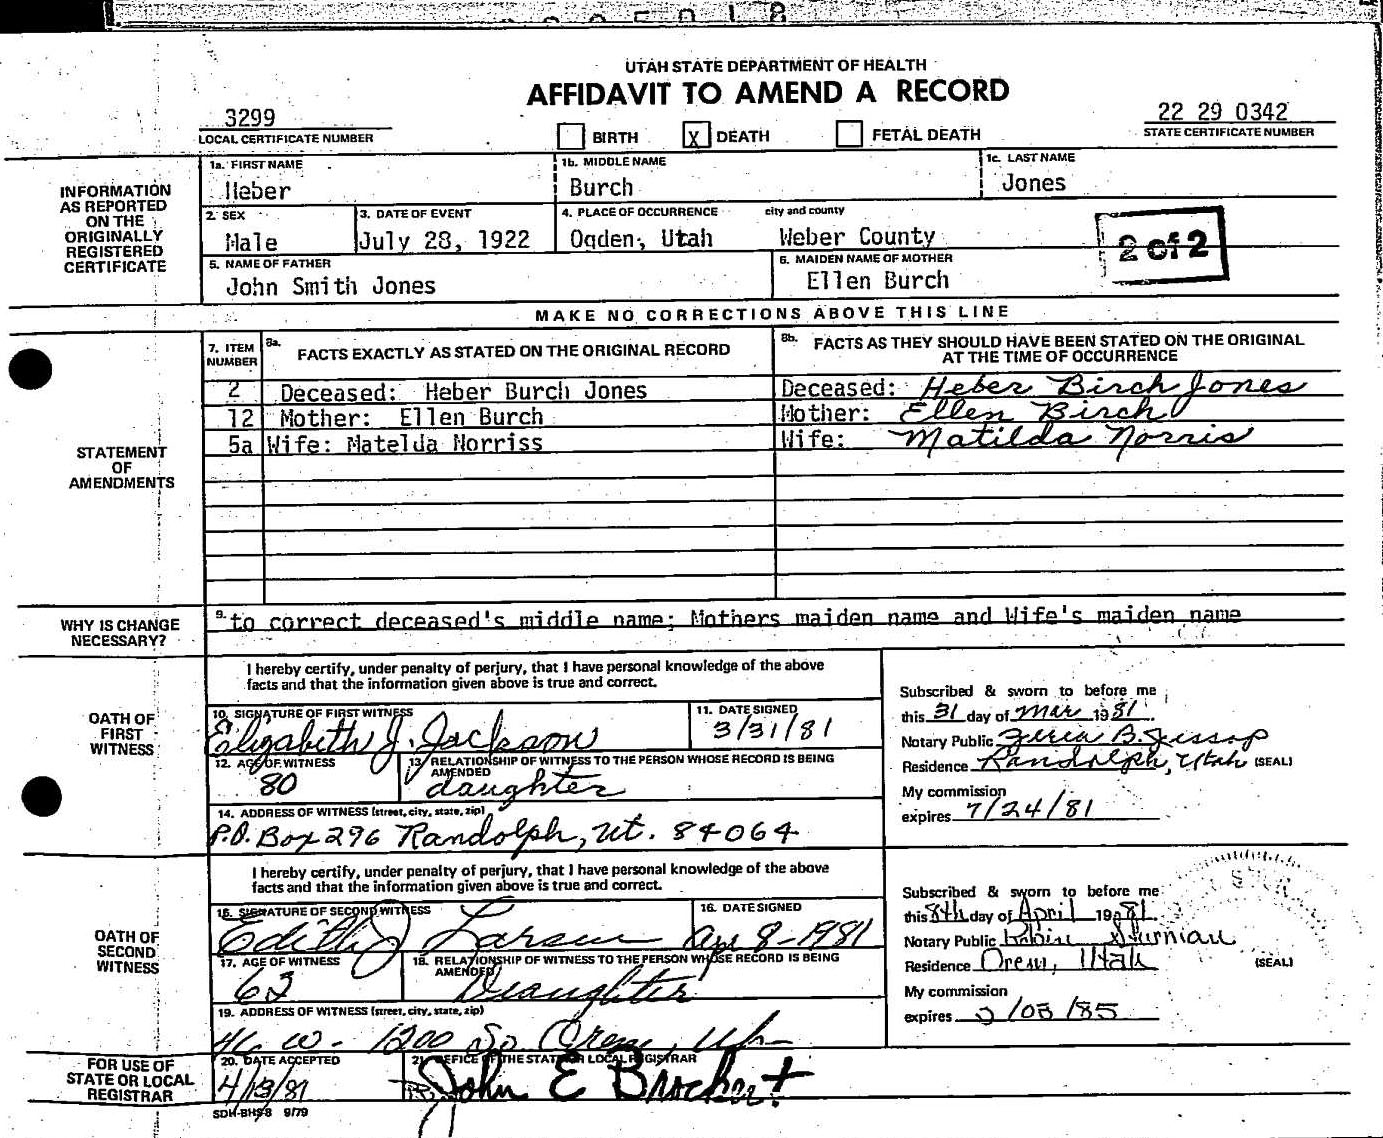 UTAH STATE DEPARTMENT OF HEALTH
AFFIDAVIT TO AMEND A RECORD
3299
LOCAL CERTIFICATE NUMBER
BIRTH X DEATH FETAL DEATH
22 29 0342
STATE CERTIFICATE NUMBER
INFORMATION AS REPORTED ON THE ORIGINALLY REGISTERED CERTIFICATE
1a. FIRST NAME 1b. MIDDLE NAME 1c. LAST NAME
Heber Burch Jones
2. SEX 3. DATE OF EVENT 4. PLACE OF OCCURRENCE city and county
Male July 28, 1922 Ogden, Utah Weber County
2 of 2
5. NAME OF FATHER 6. MAIDEN NAME OF MOTHER
John Smith Jones Ellen Burch
MAKE NO CORRECTIONS ABOVE THIS LINE
STATEMENT OF AMENDMENTS
7. ITEM NUMBER 8a. FACTS EXACTLY AS STATED ON THE ORIGINAL RECORD 8b. FACTS AS THEY SHOULD HAVE BEEN STATED ON THE ORIGINAL AT THE TIME OF OCCURRENCE
2 Deceased: Heber Burch Jones Deceased: Heber Birch Jones
12 Mother: Ellen Burch Mother: Ellen Birch
5a Wife: Matelda Norriss Wife: Matilda Norris
WHY IS CHANGE NECESSARY?
9. to correct deceased's middle name; Mothers maiden name and Wife's maiden name
OATH OF FIRST WITNESS
I hereby certify, under penalty of perjury, that I have personal knowledge of the above
facts and that the information given above is true and correct.
10. SIGNATURE OF FIRST WITNESS 11. DATE SIGNED
Elizabeth J. Jackson 3/31/81
12. AGE OF WITNESS 13. RELATIONSHIP OF WITNESS TO THE PERSON WHOSE RECORD IS BEING AMENDED
80 daughter
14. ADDRESS OF WITNESS (street, city, state, zip)
P.O. Box 296 Randolph, Ut. 84064
Subscribed & sworn to before me
this 31 day of Mar 1981.
Notary Public B. Jessop
Residence Randolph, Utah (SEAL)
My commission
expires 7/24/81
OATH OF SECOND WITNESS
I hereby certify, under penalty of perjury, that I have personal knowledge of the above
facts and that the information given above is true and correct.
15. SIGNATURE OF SECOND WITNESS 16. DATE SIGNED
Edith J Larsen Apr 8-1981
17. AGE OF WITNESS 18. RELATIONSHIP OF WITNESS TO THE PERSON WHOSE RECORD IS BEING AMENDED
63 Daughter
19. ADDRESS OF WITNESS (street, city, state, zip)
W. 1200 So. Orem,
Subscribed & sworn to before me
this 8th day of April 1981
Notary Public
Residence Orem, Utah (SEAL)
My commission
expires /85
FOR USE OF STATE OR LOCAL REGISTRAR
20. DATE ACCEPTED 21. OFFICE OF THE STATE OR LOCAL REGISTRAR
4/13/81 John E Brockert
SDH-BHS-8 9/79